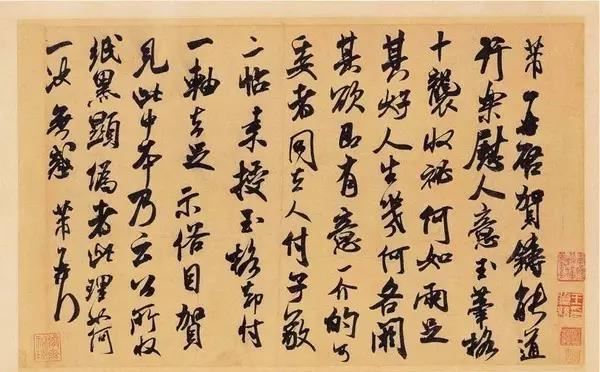 芾再啓賀鑄能道
行樂慰人意玉筆格
十襲收祕何如兩足
其好人生幾何各閼
其欲即有意一介的可
委者同去人付子敬
二帖來授玉格却付
一軸去足示俗目賀
見此中本乃云公所收
紙黑顯偽者此理如何
一決無惑芾再行